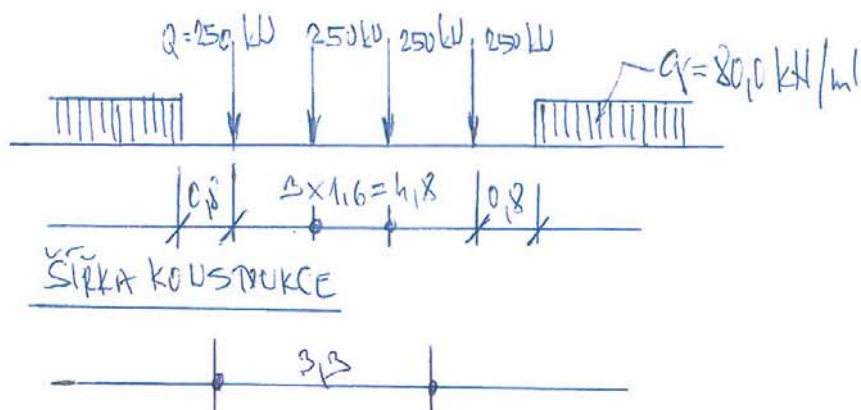 Q=250 kN 250kN 250kN 250kN
q=80,0 kN/m
0,8 3x1,6=4,8 0,8
ŠÍŘKA KONSTRUKCE
3,3